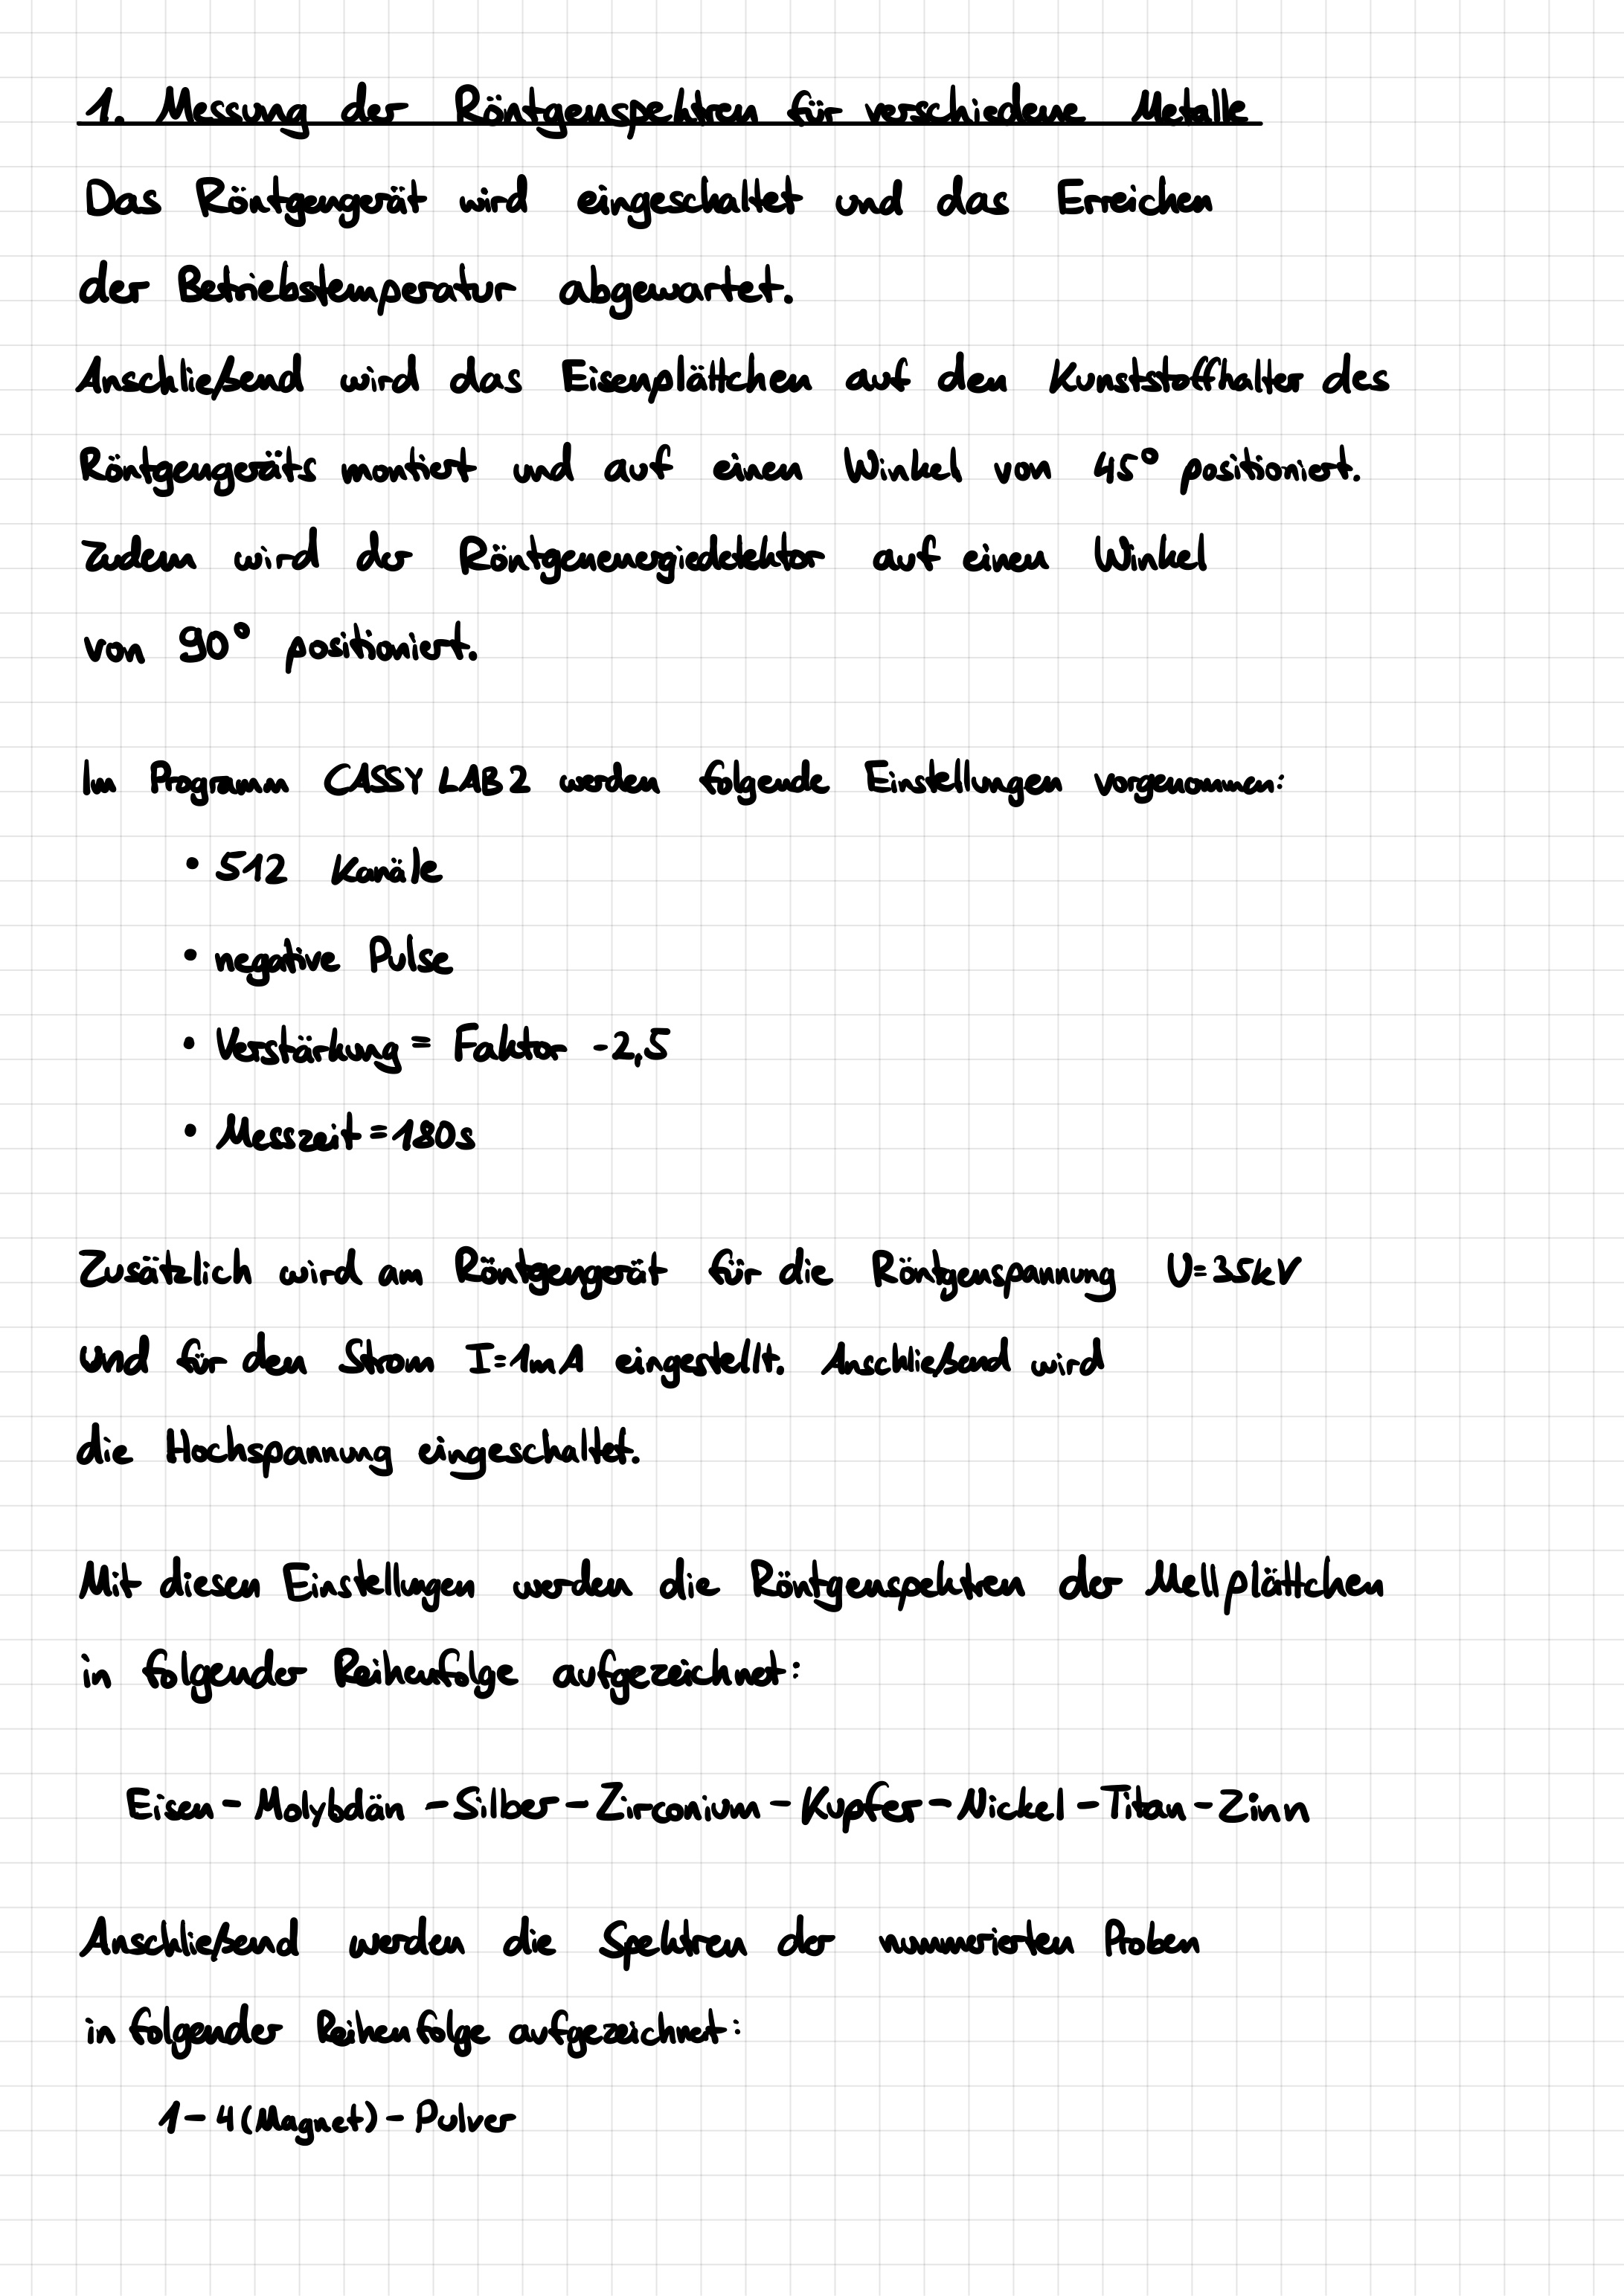 1. Messung der Röntgenspektren für verschiedene Metalle
Das Röntgengerät wird eingeschaltet und das Erreichen
der Betriebstemperatur abgewartet.
Anschließend wird das Eisenplättchen auf den Kunststoffhalter des
Röntgengeräts montiert und auf einen Winkel von 45° positioniert.
Zudem wird der Röntgenenergiedetektor auf einen Winkel
von 90° positioniert.
Im Programm CASSY LAB 2 werden folgende Einstellungen vorgenommen:
• 512 Kanäle
• negative Pulse
• Verstärkung = Faktor -2,5
• Messzeit = 180s
Zusätzlich wird am Röntgengerät für die Röntgenspannung U=35kV
und für den Strom I=1mA eingestellt. Anschließend wird
die Hochspannung eingeschaltet.
Mit diesen Einstellungen werden die Röntgenspektren der Mellplättchen
in folgender Reihenfolge aufgezeichnet:
Eisen - Molybdän - Silber - Zirconium - Kupfer - Nickel - Titan - Zinn
Anschließend werden die Spektren der nummerierten Proben
in folgender Reihenfolge aufgezeichnet:
1 - 4 (Magnet) - Pulver